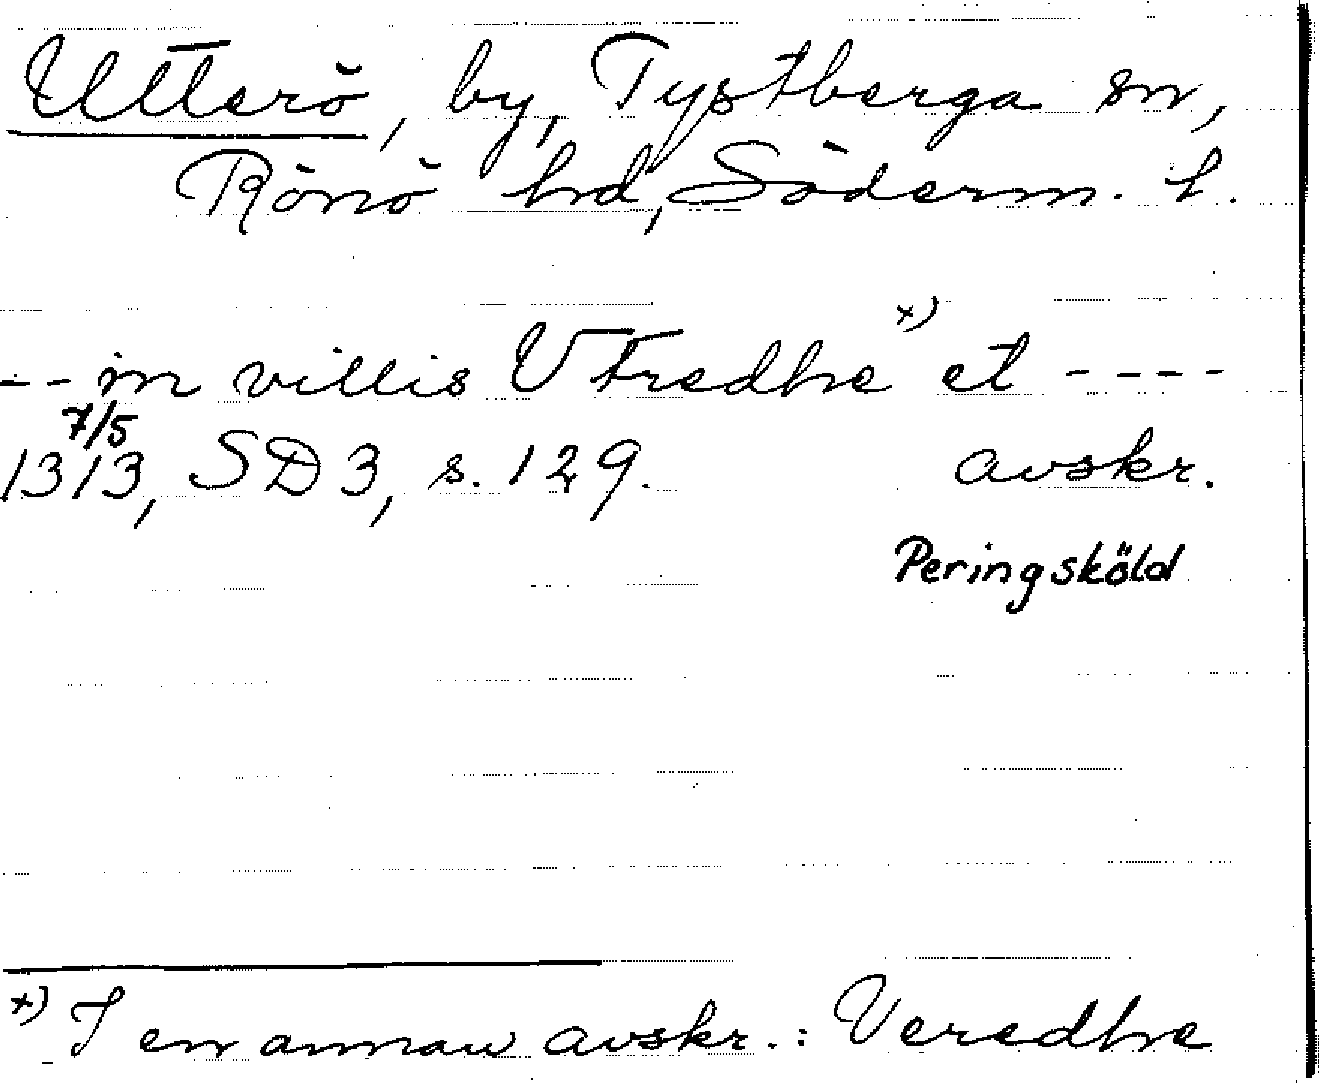 Utterö, by, Tystberga sn,
Rönö hd, Söderm. l.
-- in villis Vtredhe x) et ----
7/5
1313, SD 3, s. 129. avskr.
Peringsköld
x) I en annan avskr.: Veredhe